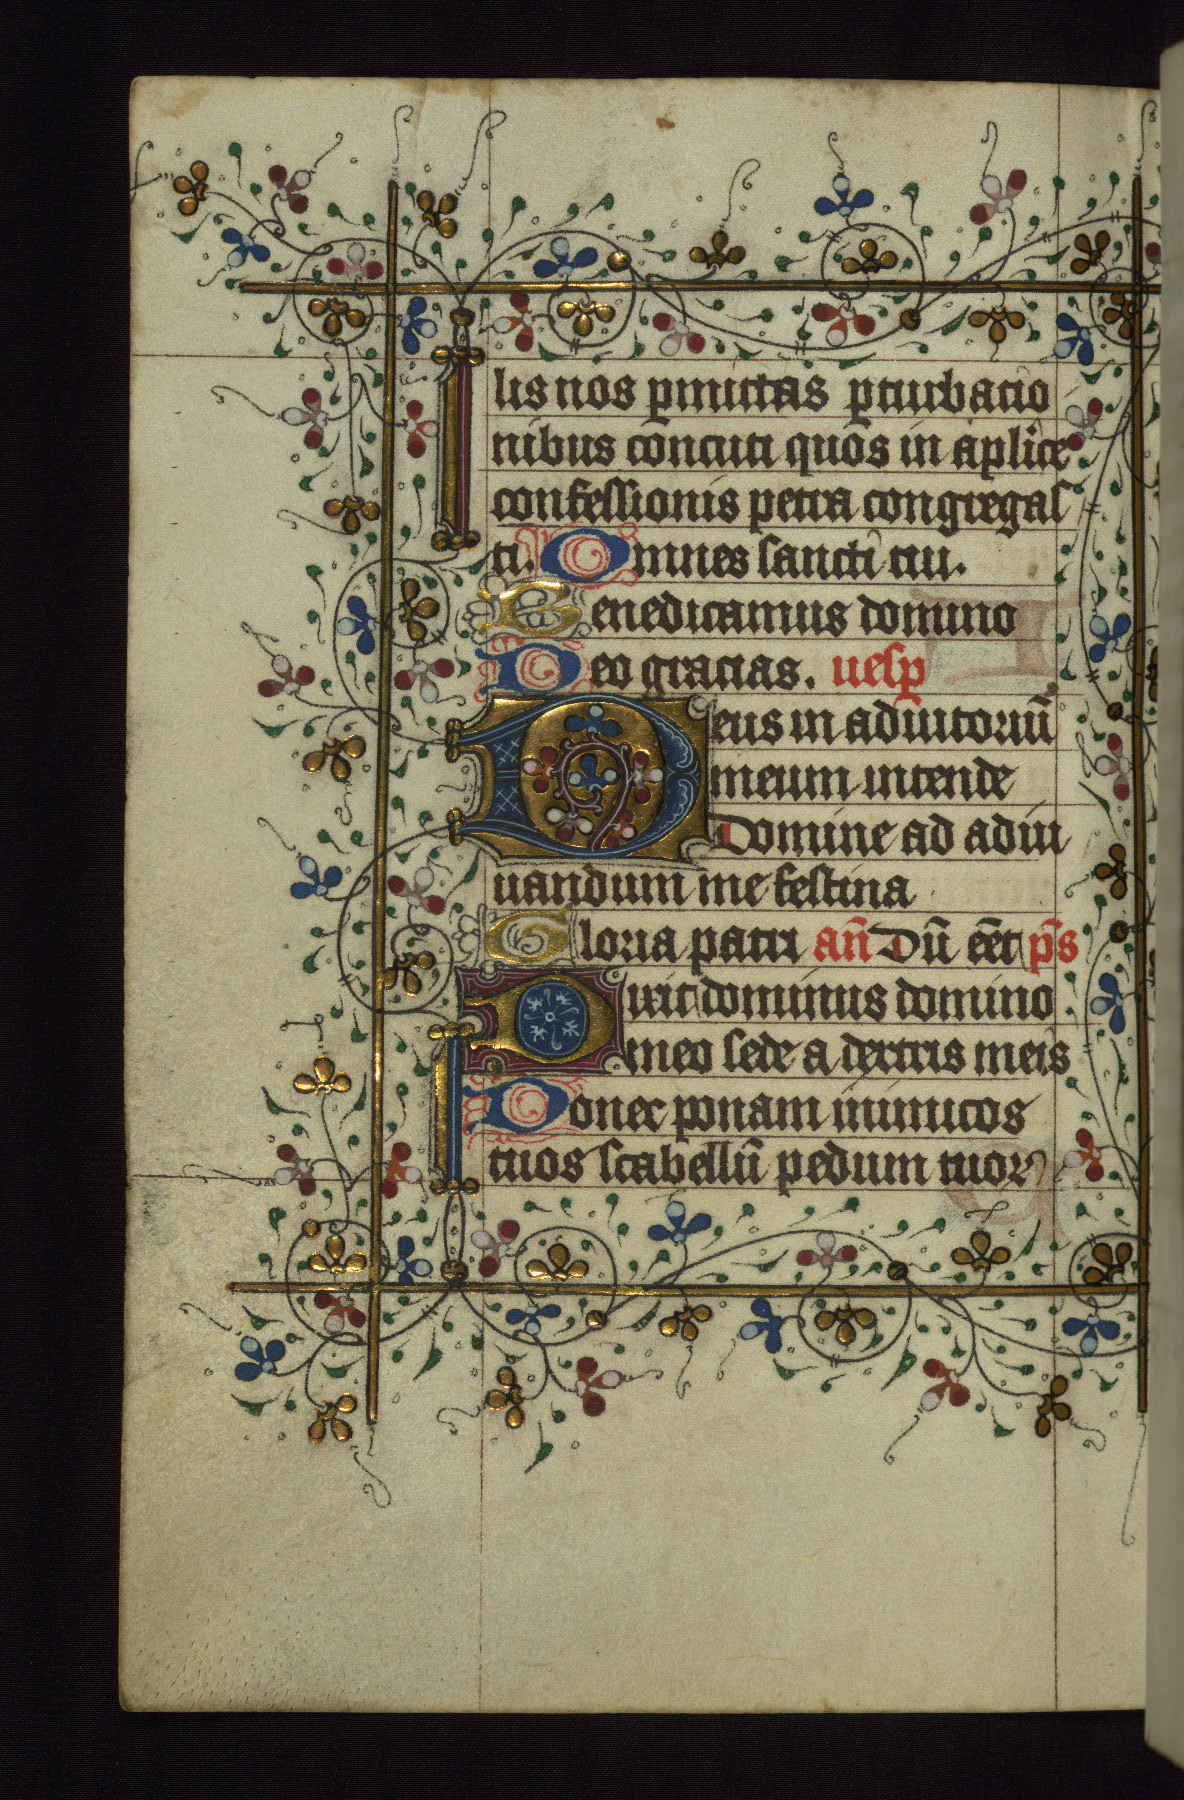 lis nos ꝑmittas ꝑturbatio
nibus concuti quos in aplice
confessionis petra congregas
ti. Omnes sancti tui.
Benedicamus domino
Deo gracias. uesꝑ
Deus in adiutoriū
meum intende
Domine ad adiu
uandum me festina
Gloria patri an̄ Dū eēt ps̄
Dixit dominus domino
meo sede a dextris meis
Donec ponam inimicos
tuos scabellū pedum tuoꝝ